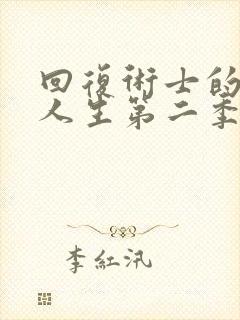 回復術士的
人生第二季
李紅汛